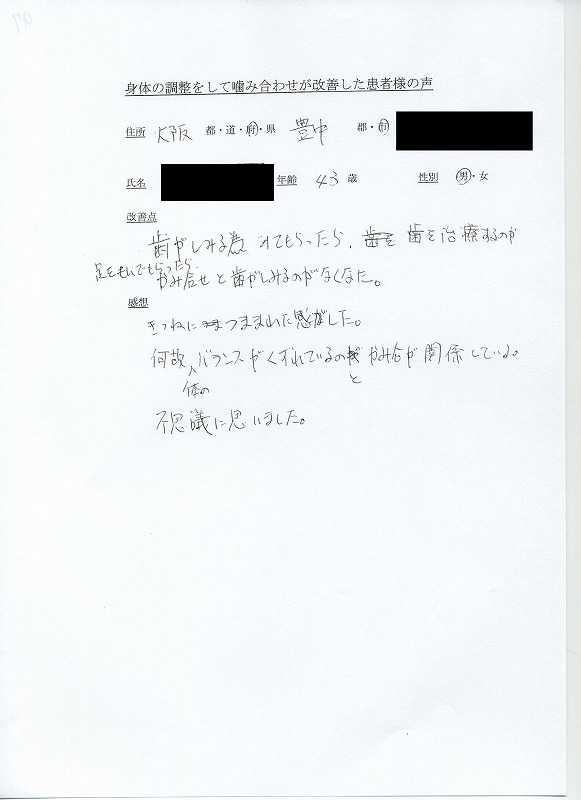 身体の調整をして噛み合わせが改善した患者様の声
住所 大阪 都・道・府・県 豊中 郡・市
氏名 年齢 43 歳 性別 男・女
改善点
歯がしみる為 みてもらったら、歯を 歯を治療するのが
足をもんでもらったら、
かみ合せと歯がしみるのがなくなた。
感想
きつねにつままれた感がした。
何故 バランスがくずれているのが かみ合が関係している。
体の
と
不思議に思いました。